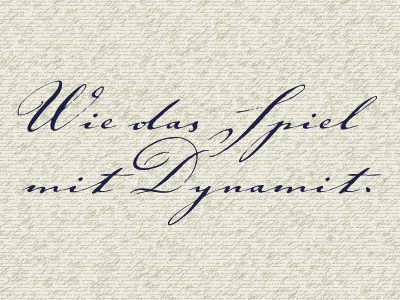 Wie das Spiel
mit Dynamit.